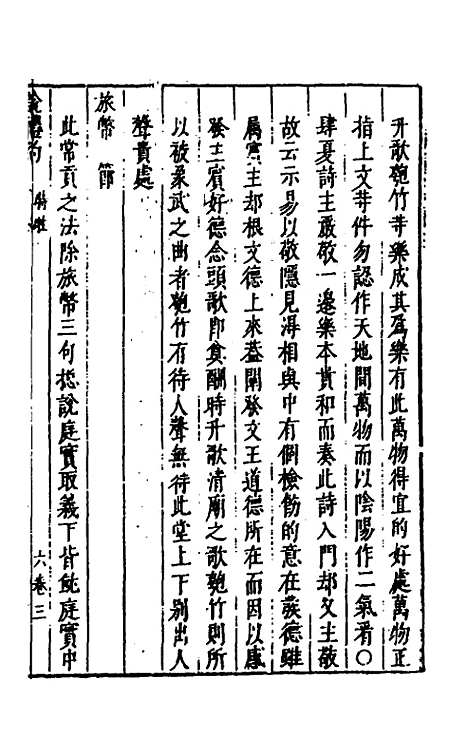 升歌匏竹等樂成其爲樂有此萬物得宜的好處萬物正
指上文等件勿認作天地間萬物而以陰陽作二氣看〇
肆夏詩主嚴敬一邊樂本貴和而奏此詩入門却又主敬
故云示易以敬隱見淂相與中有個檢飭的意在發德雖
屬賓主却根文德上來葢闡發文王道德所在而因以感
發主賓好德念頭歌即奠酬時升歌清廟之歌匏竹則所
以被象武之曲者匏竹有待人聲無待此堂上下別出人
聲貴處
旅幣 節
此常貢之法除旅幣三句㧾說庭實取義下皆䏻庭實中
郊特牲
六卷三